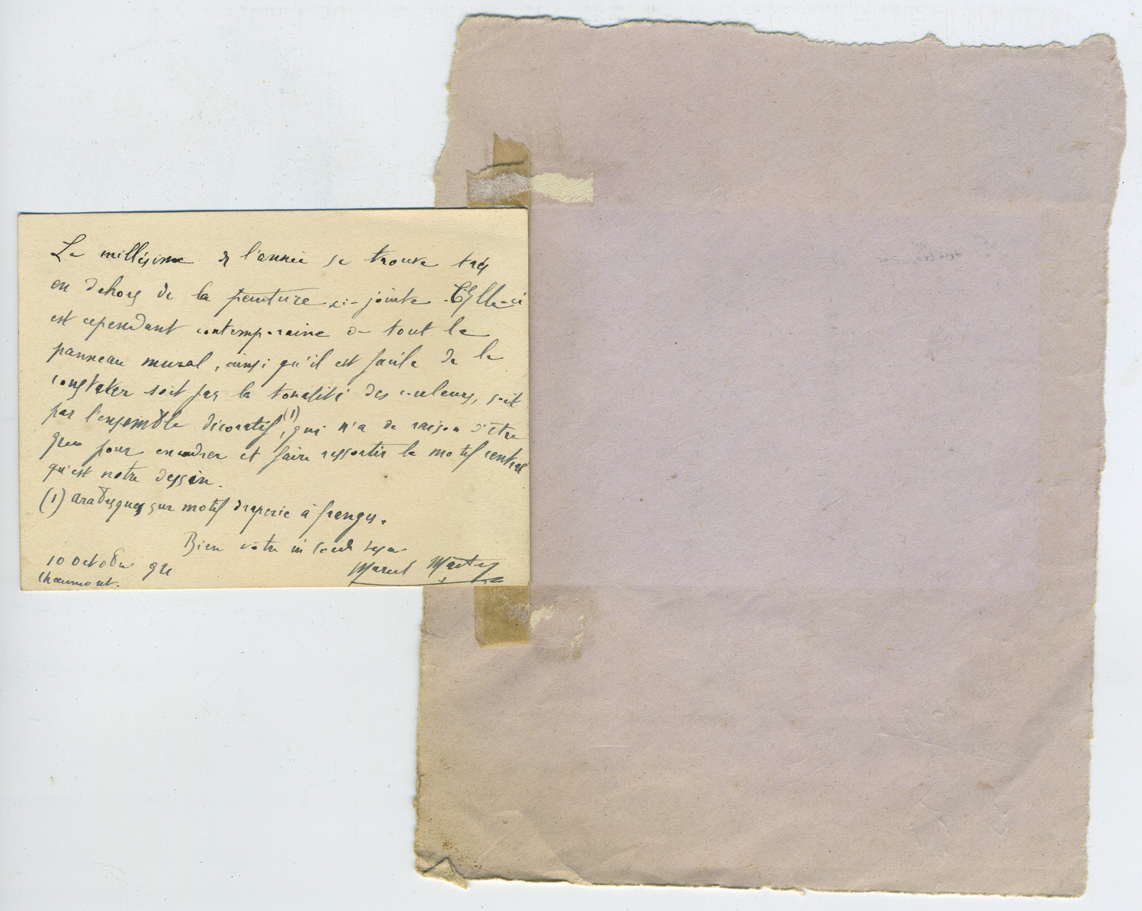 Le millésime de l'année se trouve très
en dehors de la peinture ci-jointe. Celle-ci
est cependant contemporaine de tout le
panneau mural, ainsi qu'il est facile de le
constater soit par la tonalité des couleurs, soit
par l'ensemble décoratif (1), qui n'a de raison d'être
que pour encadrer et faire ressortir le motif central
qu'est notre dessin.
(1) arabesques sur motif draperie à franges.
Bien votre
10 octobre 921 Marcel
Chaumont.